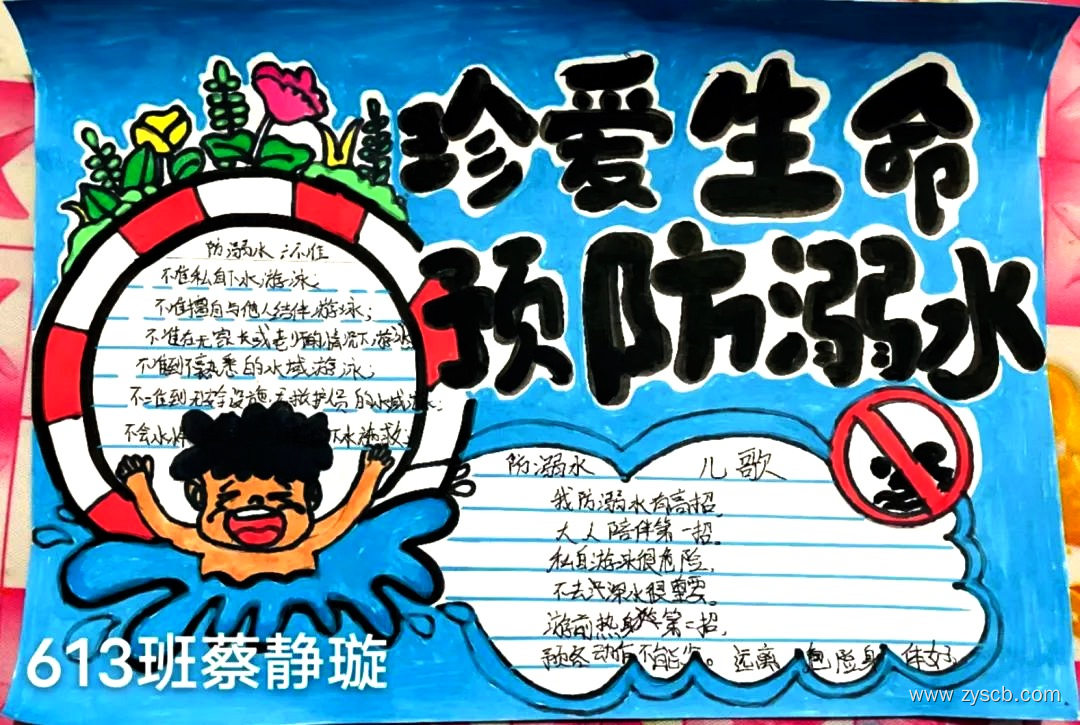 珍爱生命
预防溺水
防溺水 六不准
不准私自下水游泳;
不准擅自与他人结伴游泳;
不准在无家长或老师的情况下游泳
不准到不熟悉的水域游泳;
不准到无安全设施、无救护员的水域游泳;
不会水性 下水施救;
防溺水 儿歌
我防溺水有高招,
大人陪伴第一招。
私自游泳很危险,
不去深水很重要。
游前热身第二招,
预备动作不能少。远离危险身体好
613班蔡静璇
www.zyscb.com